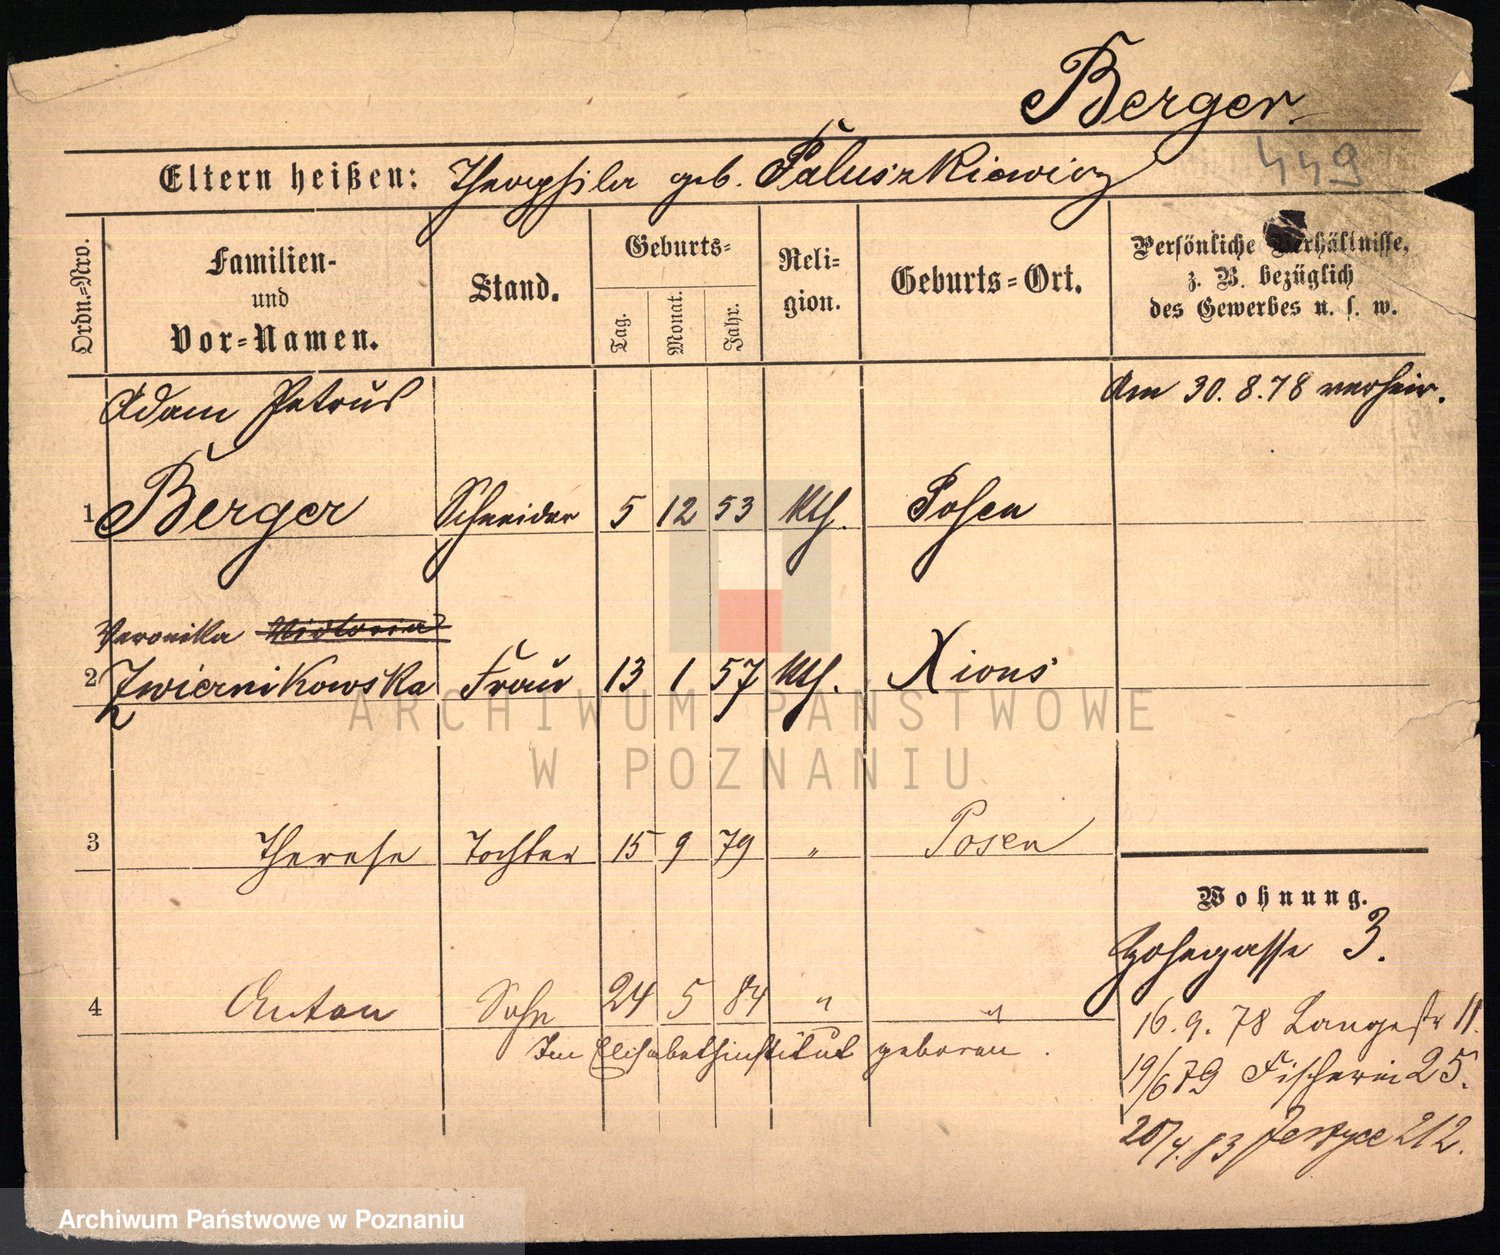 Berger.
449
Eltern heißen: Theophila geb. Paluszkiewicz
Ordn.=Nro.
Familien-
und
Vor=Namen.
Stand.
Geburts=
Tag.
Monat.
Jahr.
Reli=
gion.
Geburts=Ort.
Persönliche Verhältnisse,
z. B. bezüglich
des Gewerbes u. s. w.
Adam Petrus
Am 30. 8. 78 verheir.
1 Berger Schneider 5 12 53 kth. Posen
Veronika Victoria
2 Zwiernikowska Frau 13 1 57 kth. Xions
ARCHIWUM PAŃSTWOWE
W POZNANIU
3 Therese Tochter 15 9 79 " Posen
Wohnung.
3.
4 Anton Sohn 24 5 84 " "
16. 9. 78 Langestr 11.
Im Elisabethinstitut geboren.
19/6 79 Fischerei 25.
20/4. 83 Jersyce 212.
Archiwum Państwowe w Poznaniu